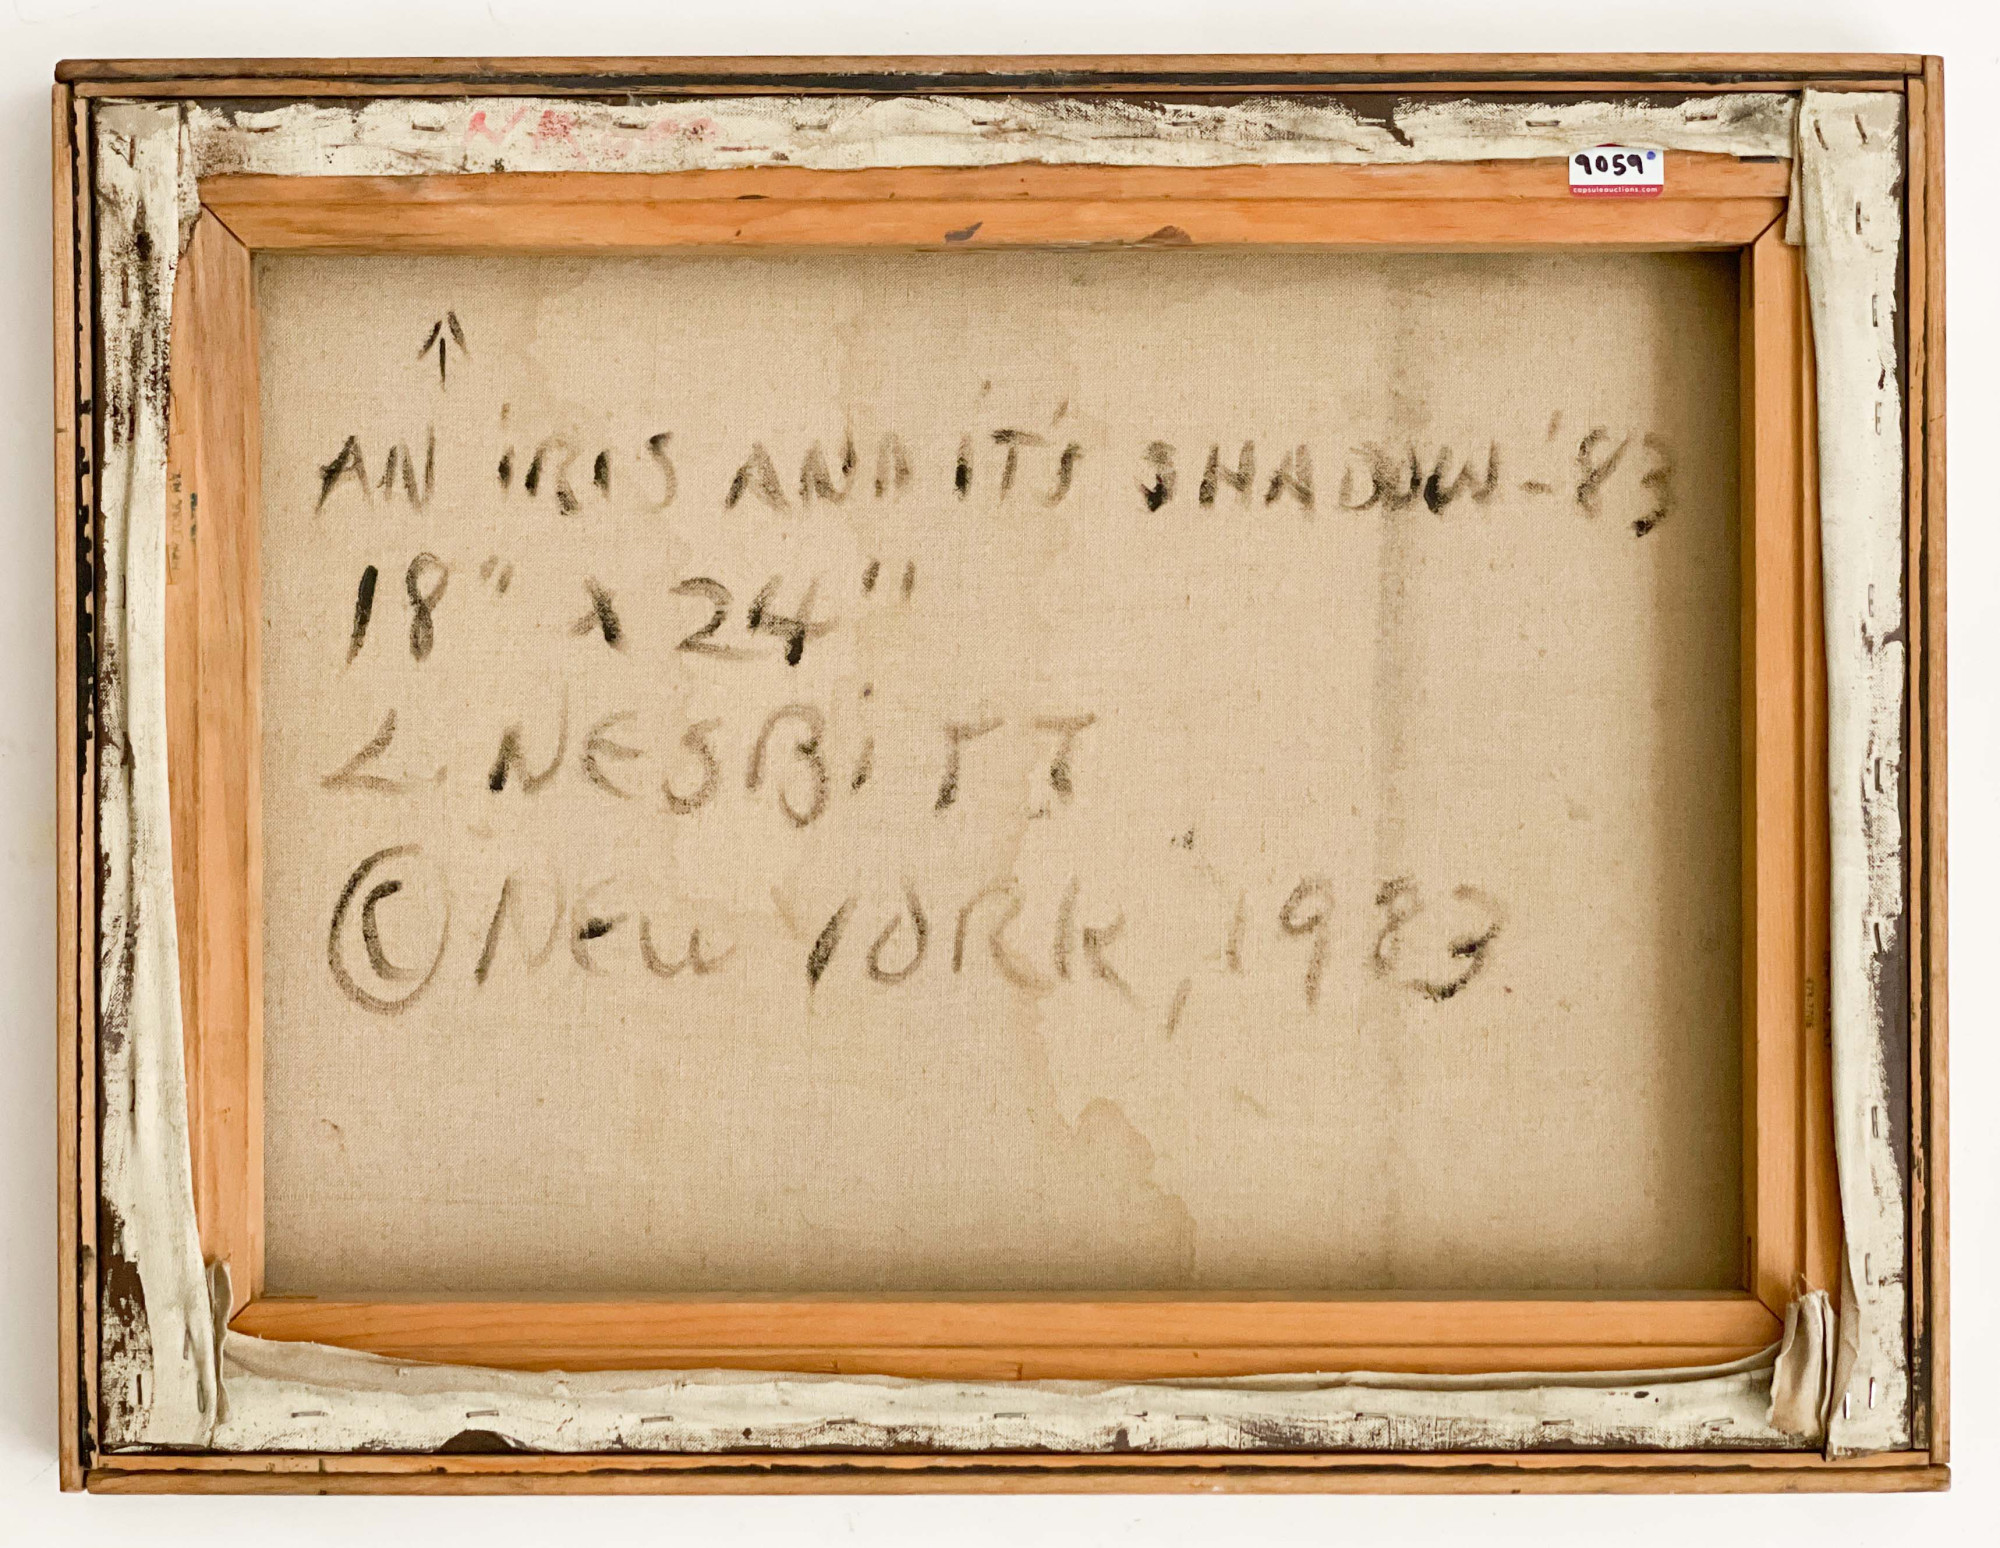 9059
capsuleauctions.com
↑
AN IRIS AND IT'S SHADOW - '83
18" x 24"
L. NESBITT
© NEW YORK, 1983